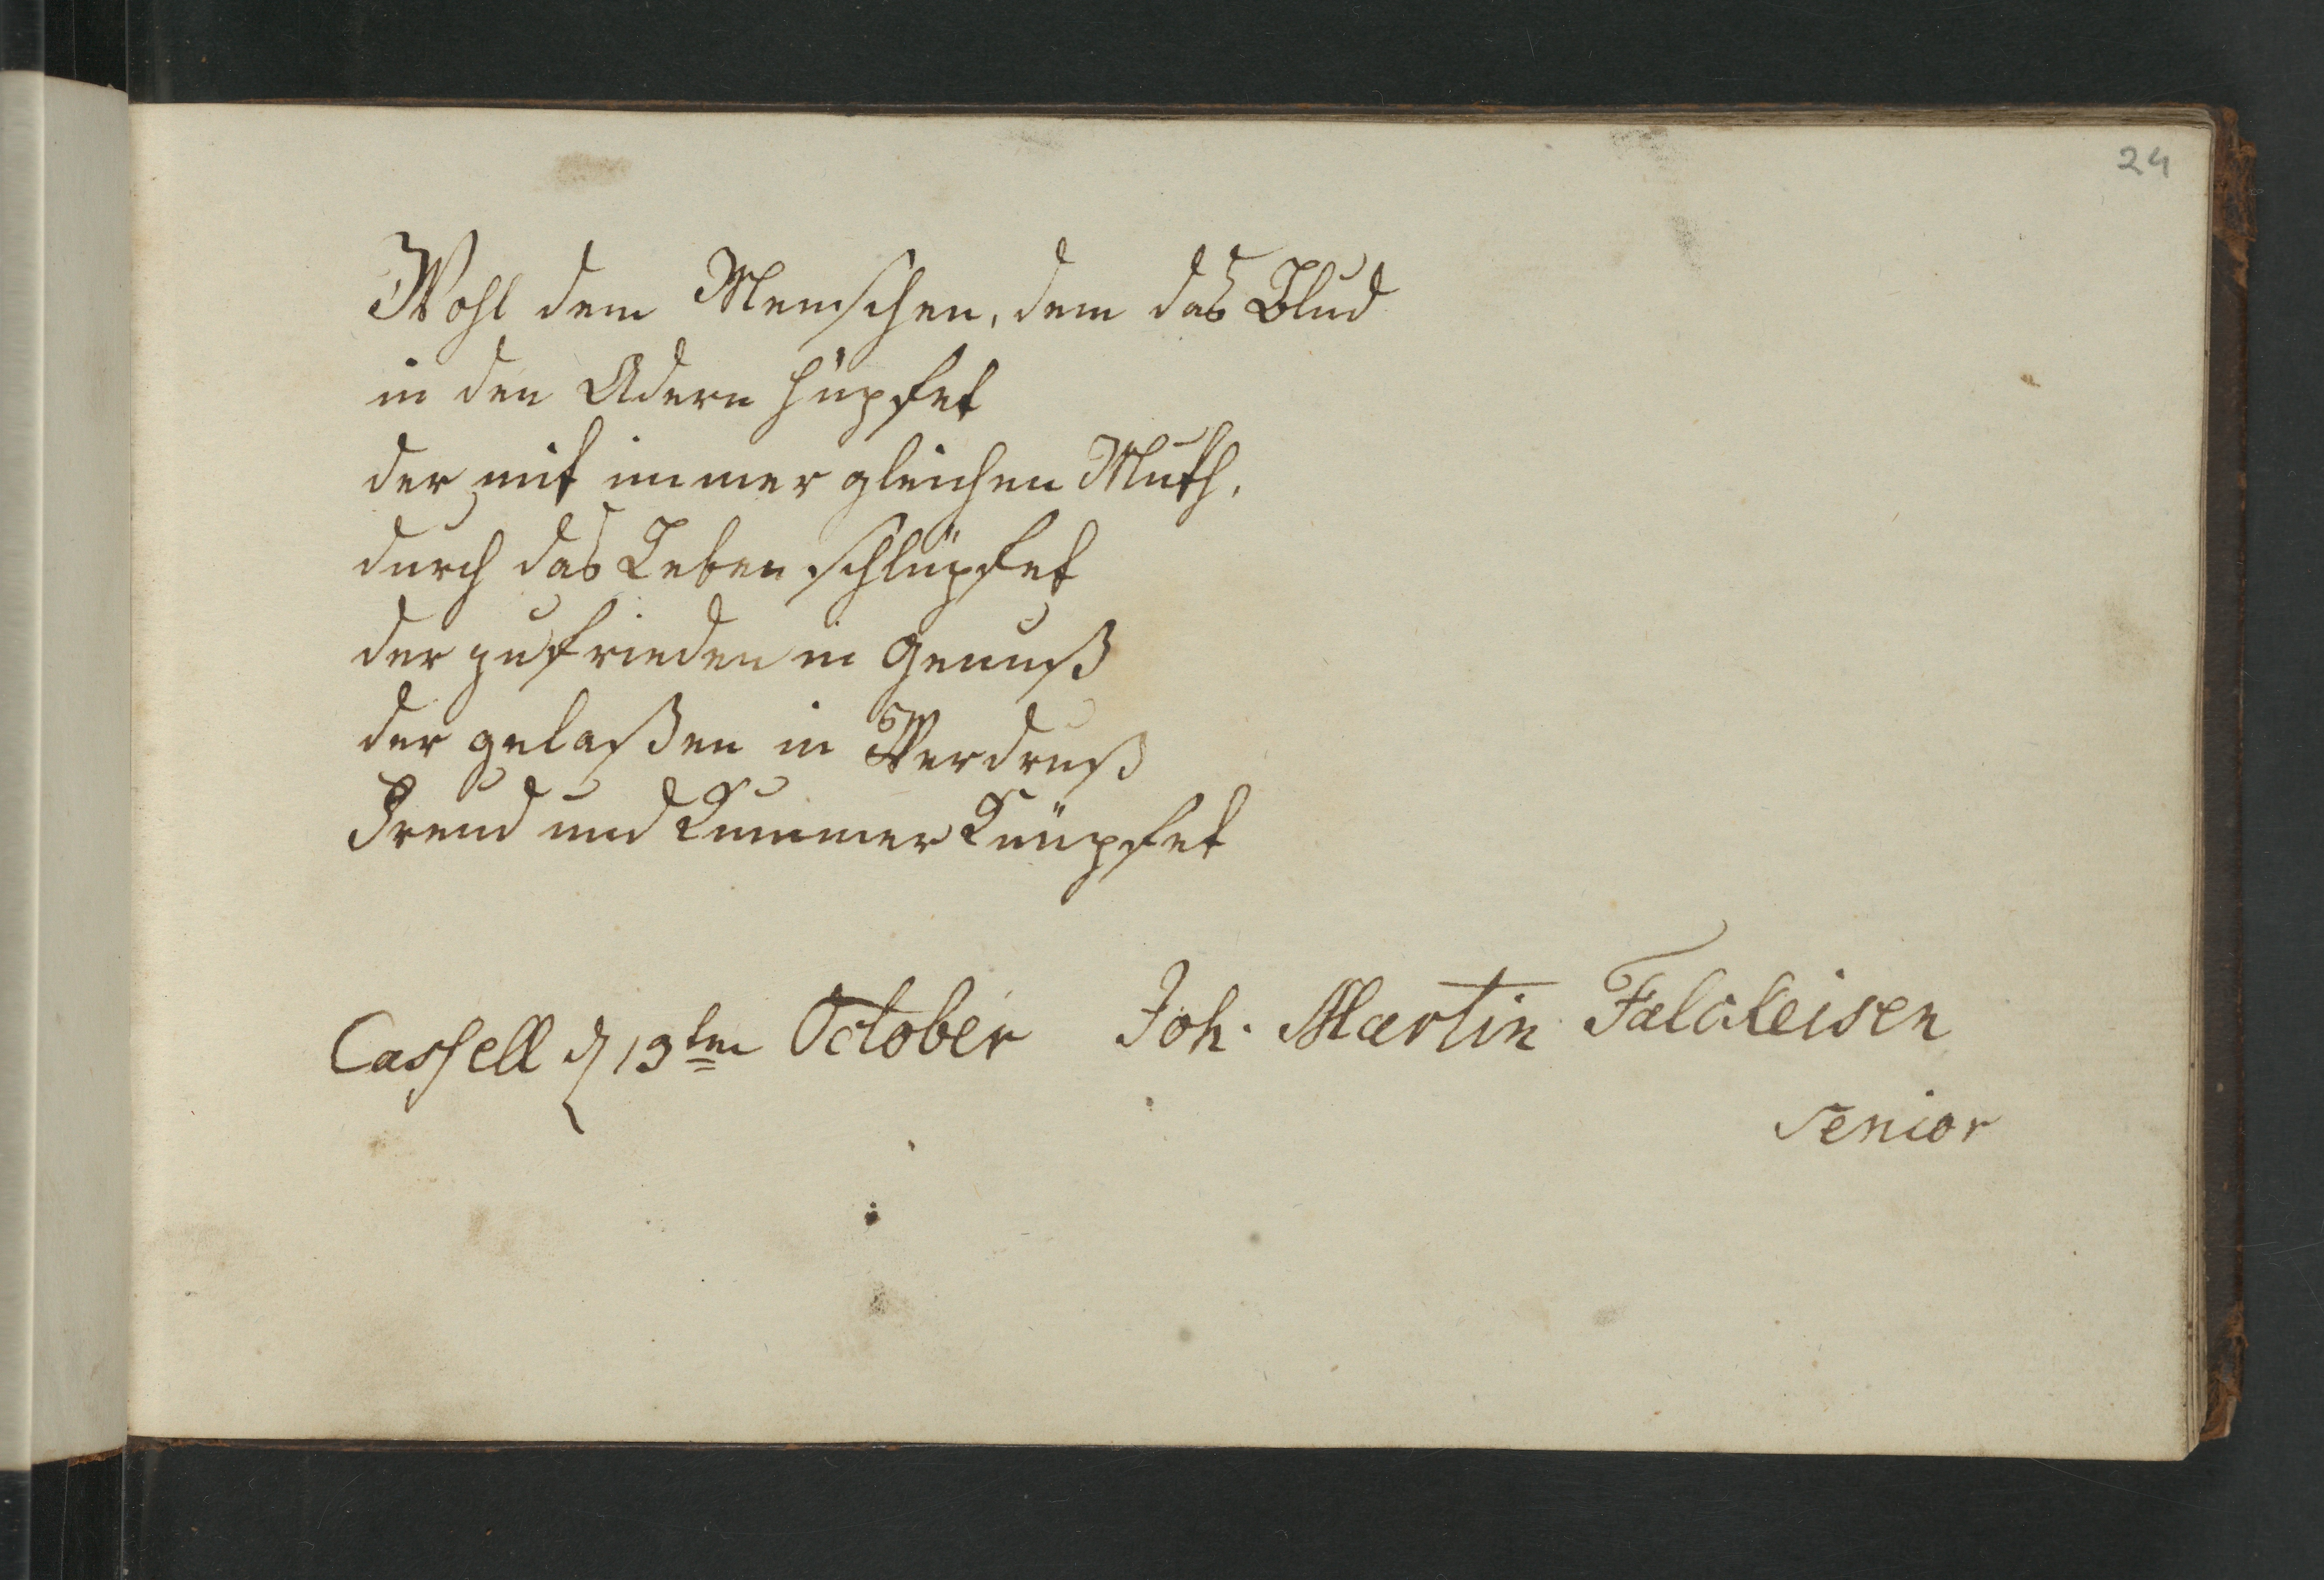 24
Wohl dem Menschen, dem das Blud
in den Adern hüpfet
der mit immer gleichen Muth,
durch das Leben schlüpfet
der zufrieden in Genuß
der gelaßen in Verdruß
Freud und Kummer Knüpfet
Cassell d 13ten October Joh. Martin Falckeisen
Senior